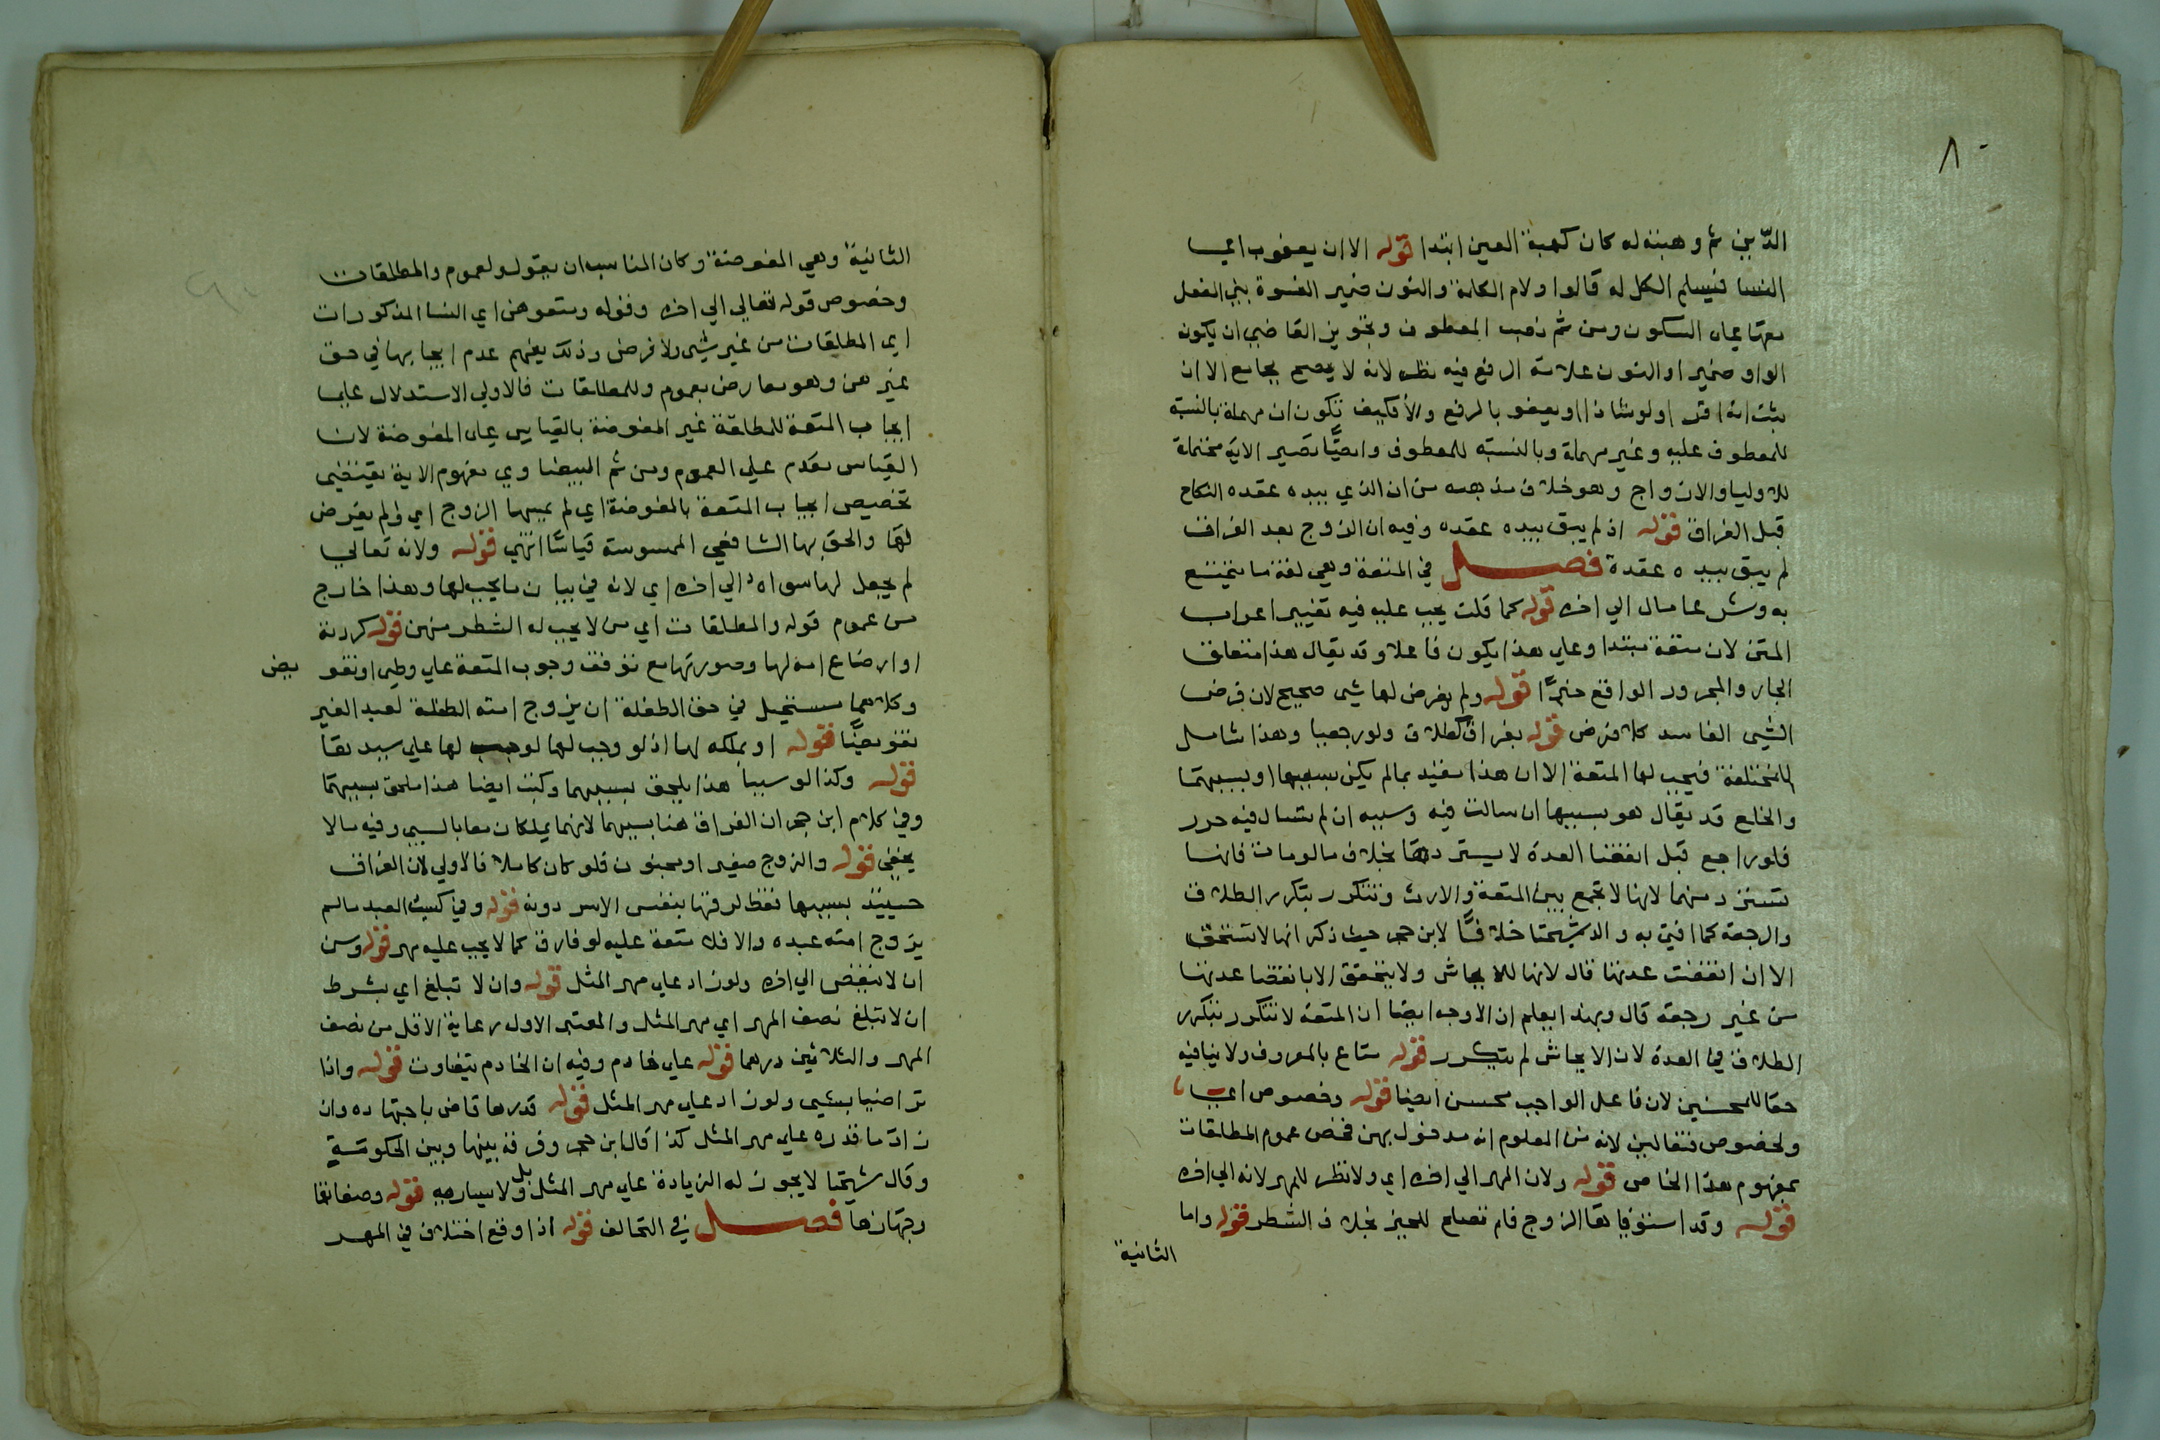 ٨٠
الدّين ثم وهبته له كان كهبة العين ابتدا قوله الا ان يعفون اي
النسا فيسلم الكل له قالوا ولام الكلمة والنون ضمير النسوة بني الفعل
معها علي السكون ومن ثم ذهب المعطوف وتجويز القاضي ان يكون
الواو ضميرا والنون علامة الرفع فيه نظر لانه لا يصح بجامع الا ان
يثبت انه قري ولو شاذا او يعفو بالرفع والا فكيف تكون ان مهملة بالنسبة
للمعطوف عليه وغير مهملة وبالنسبه للمعطوف وايضًا تصير الاية محتملة
للاوليا والازواج وهو خلاف مذهبه من ان الذي بيده عقده النكاح
قبل الفراق قوله اذ لم يبق بيده عقده وفيه ان الزوج بعد الفراق
لم يبق بيده عقدة فصل في المتعة وهي لغة ما يتمتع
به وشرعا مال الي اخره قوله كما قلت يجب عليه فيه تغيير اعراب
المتن لان متعة مبتدا وعلي هذا يكون فاعلا وقد يقال هذا متعلق
الجار والمجرور الواقع خبرًا قوله ولم يفرض لها شي صحيح لان فرض
الشي الفاسد كلا فرض قوله بفراق كطلاق ولو رجعيا وهذا شامل
للمختلعة فيجب لها المتعة الا ان هذا مقيد بما لم يكن بسببها او بسببهما
والخلع قد يقال هو بسببها ان سالت فيه وسببه ان لم تسال فيه حرر
فلو راجع قبل انقضا العدة لا يسترد ها بخلاف ما لو مات فانها
تسترد منها لانها لا تجمع بين المتعة والارث وتتكرر بتكرر الطلاق
والرجعة كما افتي به والد شيخنا خلافًا لابن حجر حيث ذكر انها لا تستحق
الا ان انقضت عدتها قال لانها للايحاش ولا يتحقق الا بانقضا عدتها
من غير رجعة قال وبهذا يعلم ان الاوجه ايضا ان المتعة لا تتكرر بتكرر
الطلاق في العدة لان الايحاش لم يتكرر قوله متاع بالمعروف ولا ينافيه
حقا للمحسنين لان فاعل الواجب محسن ايضا قوله وخصوص اي
ولخصوص فتعالين لانه من المعلوم انه مدخول بهن فخص عموم المطلقات
بمفهوم هذا الخاص قوله ولان المهر الي اخره اي ولا نظر للمهر لانه الي اخره
قوله وقد استوفاها الزوج فلم تصلح للجبر بخلاف الشطر قوله واما
الثانية
الثانية وهي المفوضة وكان المناسب ان يقول ولعموم والمطلقات
وخصوص قوله تعالي الي اخره وقوله ومتعوهن اي النسا المذكورات
اي المطلقات من غير شي ولا فرض وذلك يفهم عدم ايجابها في حق
غيرهن وهو معارض بعموم وللمطلقات فالاولي الاستدلال علي
ايجاب المتعة للمطلقة غير المفوضة بالقياس علي المفوضة لان
القياس مقدم علي العموم ومن ثم البيضاوي مفهوم الاية يقتضي
تخصيص ايجاب المتعة بالمفوضة اي لم يمسها الزوج اي ولم يفرض
لها والحق بها الشافعي الممسوسة قياسًا انتهي قوله ولانه تعالي
لم يجعل لها سواه الي اخره اي لانه في بيان ما يجب لها وهذا خارج
من عموم قوله والمطلقات اي من لا يجب له الشطر منهن قوله كردته
او ارضاع امه لها وصورتها مع توقف وجوب المتعة علي وطي او تفو يض
وكلاهما مستحيل في حق الطفلة ان يزوج امته الطفلة لعبد الغير
تفويضًا قوله او يملكه لها اذ لو وجب لها لوجب لها علي سيدها
قوله وكذا لو سبيا هذا يلحق بسببهما وكتب ايضا هذا ملحق بسببهما
وفي كلام ابن حجر ان الفراق هنا بسببهما لانهما يملكان معا بالسبي وفيه ما لا
يخفي قوله والزوج صغير او مجنون فلو كان كاملا فالاولي لان الفراق
حينئذ بسببها فقط لرقها بنفس الاسر دونه قوله وفي كسب العبد ما لم
يزوج امته عبده والا فلا متعة عليه لو فارق كما لا يجب عليه مهر قوله وسن
ان لا تنقص الي اخره ولو زاد علي مهر المثل قوله وان لا تبلغ اي بشرط
ان لا تبلغ نصف المهر اي مهر المثل والمعتبر الاول رعاية الاقل من نصف
المهر والثلاثين درهما قوله علي خادم وفيه ان الخادم يتفاوت قوله واذا
تراضيا بشي ولو زاد علي مهر المثل قوله قدرها قاض باجتهاده وان
زاد ما قدره علي مهر المثل كذا قال ابن حجر وفرق بينها وبين الحكومة
وقال شيخنا لا يجوز له الزيادة علي مهر المثل بل ولا يساويه قوله وصفاتها
وجهازها فصل في التحالف قوله اذا وقع اختلاف في المهر